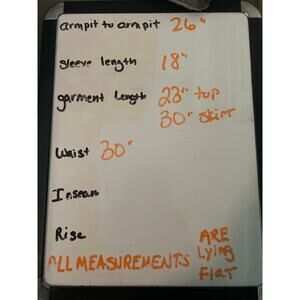 armpit to armpit 26"
sleeve length 18"
garment Length 23" top
30" skirt
Waist 30"
Inseam
Rise
ALL MEASUREMENTS ARE
Lying
FlaT